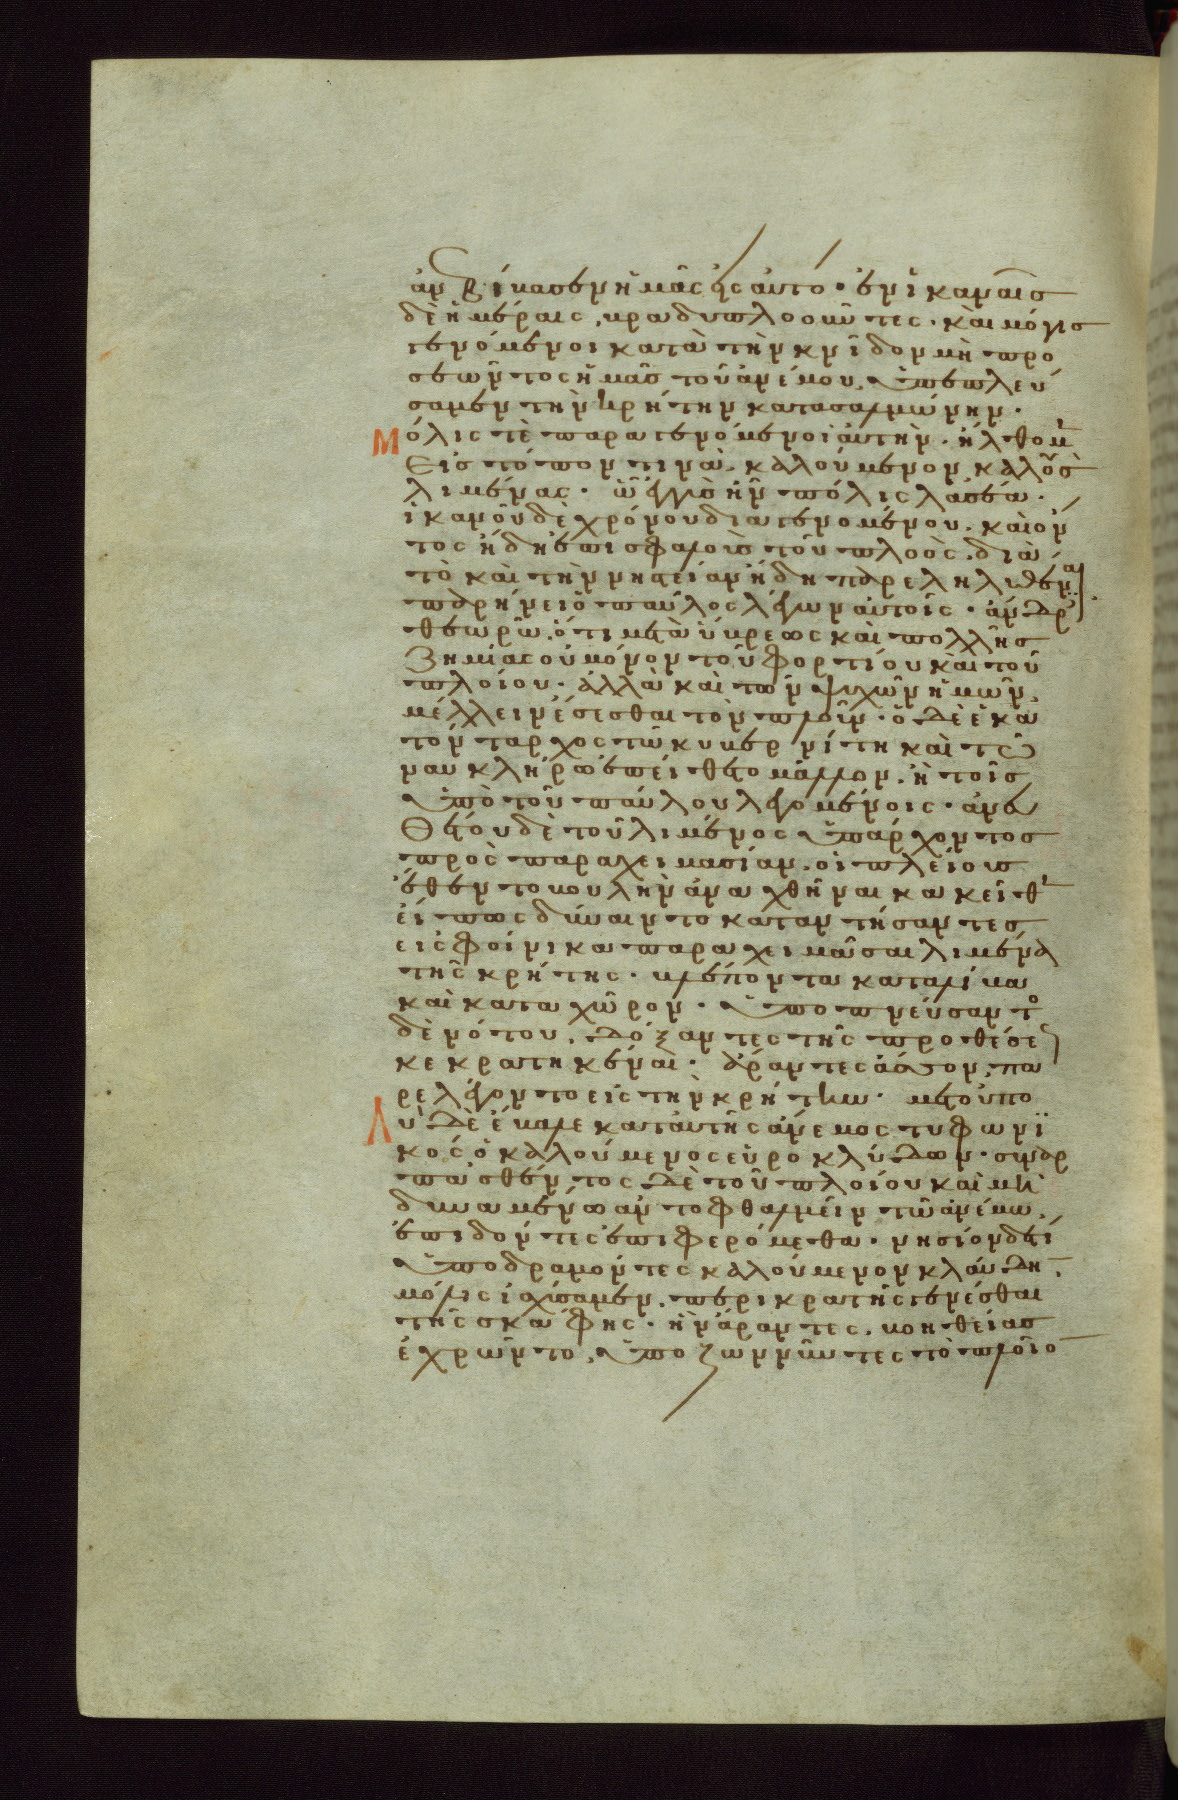 ἀνεβίβασεν ἡμᾶς εἰς αὐτό· ἐν ἱκαναῖς
δὲ ἡμέραις, βραδυπλοοῦντες· καὶ μόγις
γενόμενοι κατὰ τὴν κνῖδον μὴ προ
σεῶντος ἡμᾶς τοῦ ἀνέμου, ὑπεπλεύ
σαμεν τὴν κρήτην κατασαλμώνην·
Μόλις τὲ παραγενόμενοι αὐτὴν· ἤλθομεν
Εἰς τόπον τινὰ, καλούμενον καλοὺσ
λιμένας· ᾧ ἐγγὺσ ἦν πόλις λασέα·
ἱκανοῦ δὲ χρόνου διαγενομένου, καὶ ὄν
τος ἤδη ἐπισφαλοῦσ τοῦ πλοὸς, διὰ
τὸ καὶ τὴν νηστείαν ἤδη παρεληλυθέναι
παρήνει ὁ παῦλος λέγων αὐτοῖς· ἄνδρες
θεωρῶ, ὅτι μετὰ ὕβρεως καὶ πολλῆσ
ζημίας οὐ μόνον τοῦ φορτίου καὶ τοῦ
πλοίου· ἀλλὰ καὶ τῶν ψυχῶν ἡμῶν,
μέλλειν ἔσεσθαι τὸν πλοῦν· ὁ δὲ ἑκα
τόνταρχος τῶ κυβερνίτη καὶ τῶ
ναυκλήρω ἐπείθετο μᾶλλον, ἢ τοῖσ
ὑπὸ τοῦ παύλου λεγομένοις· ἀνευ
Θέτου δὲ τοῦ λιμένος ὑπάρχοντοσ
πρὸς παραχειμασίαν, οἱ πλείουσ
ἔθεντο βουλὴν ἀναχθῆναι κακεῖθεν
εἴπως δύναιντο καταντήσαντεσ
εἰς φοίνικα παραχειμᾶσαι λιμένα
τῆς κρήτης· βλέποντα καταλίβα
καὶ κατα χῶρον· ὑποπνεύσαντος
δὲ νότου, δόξαντες τῆς προθέσεως
κεκρατηκέναι· ἄραντες ἆσσον, πα
ρελέγοντο εἰς τὴν κρήτην· μετοὐπο
Λὺ δὲ ἔβαλε κατ αὐτῆς ἄνεμος τυφωνϊ
κός, ὁ καλούμενος εὐροκλύδων· συναρ
πασθέντος δὲ τοῦ πλοίου καὶ μὴ
δυναμένου ἀντοφθαλμεῖν τῶ ἀνέμω,
ἐπιδόντες ἐπιφερόμεθα· νησίον δέ τι
ὑποδραμόντες καλούμενον κλαύδην,
μόλις ἰσχύσαμεν, περικρατῆς γενέσθαι
τῆς σκάφης· ἣν ἄραντες, βοηθείασ
ἐχρῶντο, ὑποζωννῦντες τὸ πλοῖον